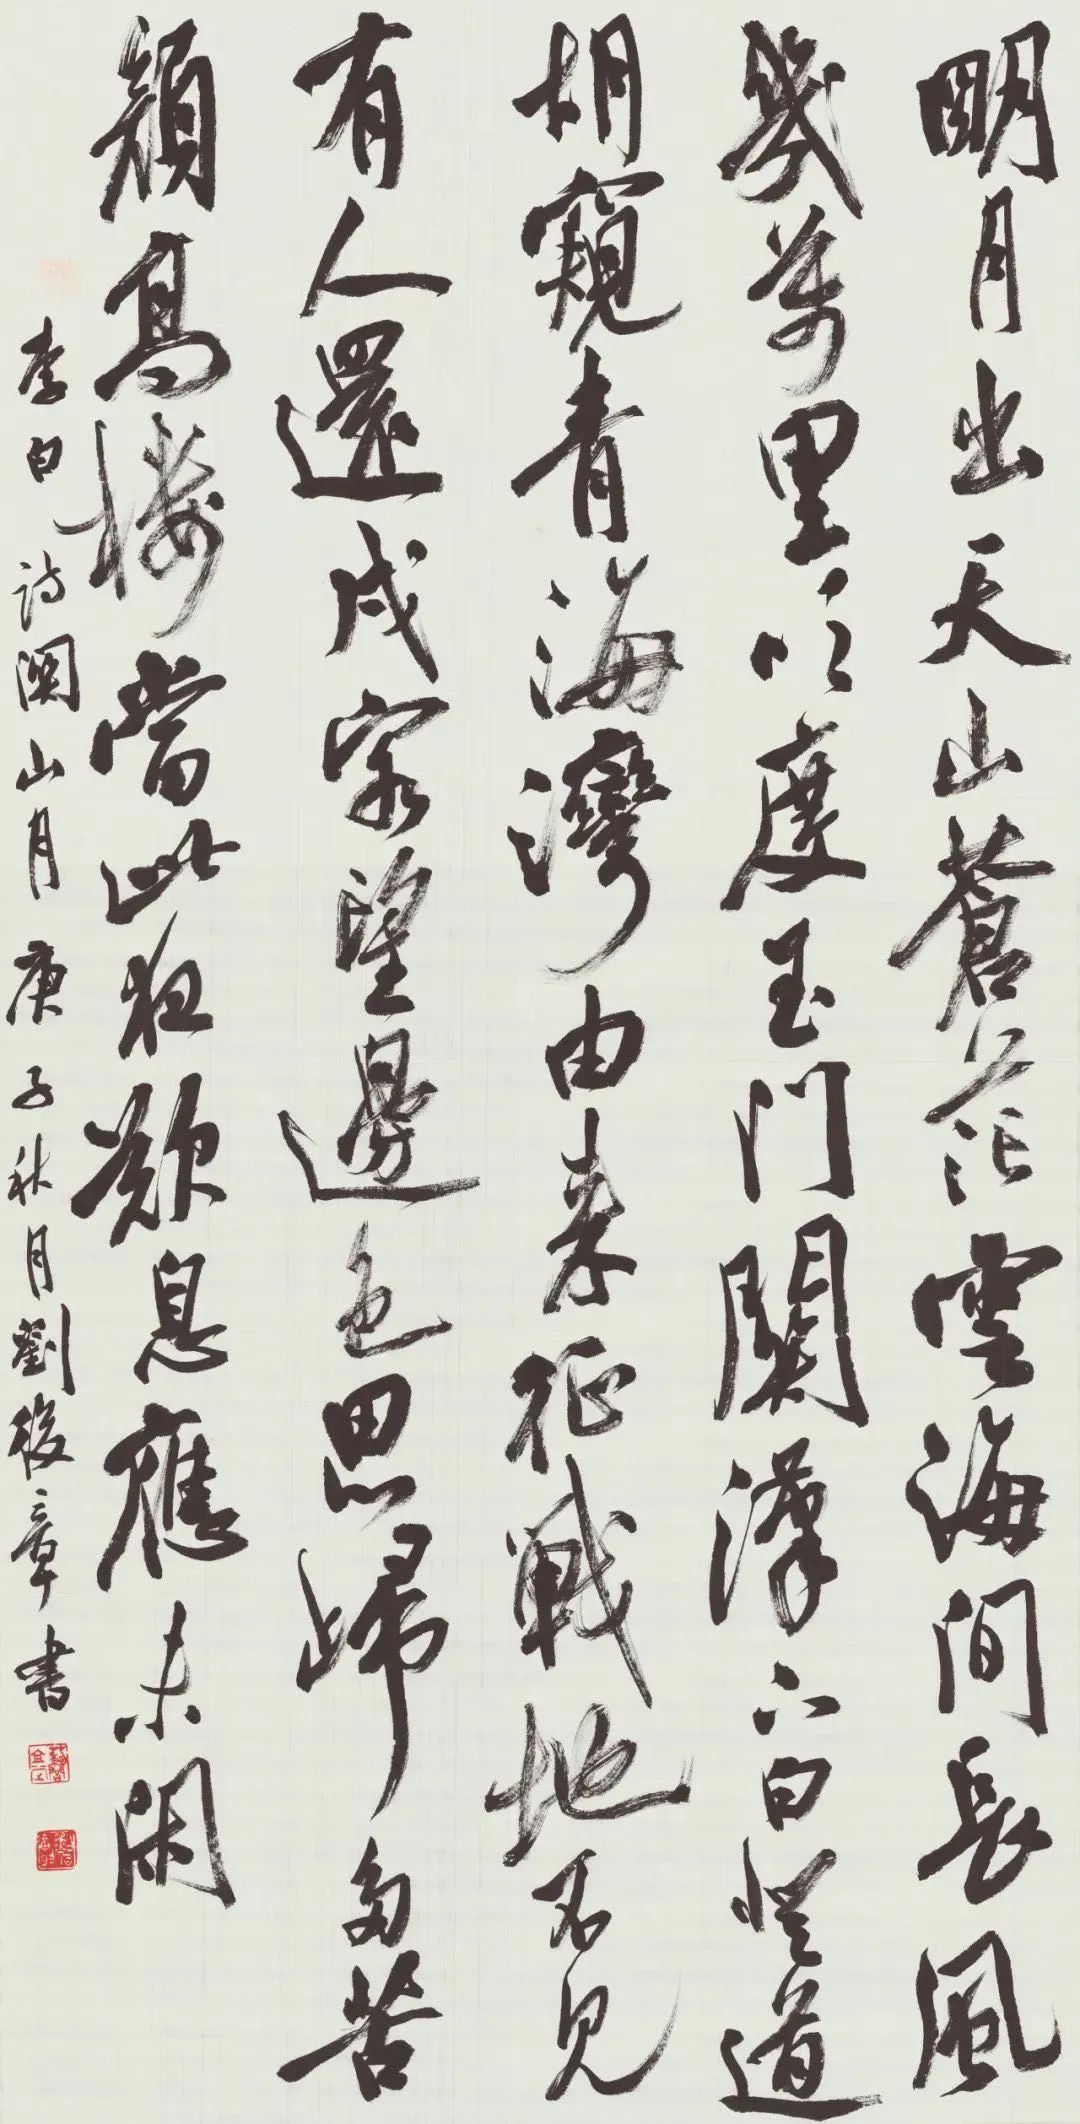 明月出天山蒼茫雲海間長風
幾萬里吹度玉門關漢下白登道
胡窺青海灣由来征戰地不見
有人還戍客望邊色思歸多苦
顏高樓當此夜歎息應未閑
李白詩關山月 庚子秋月劉章書